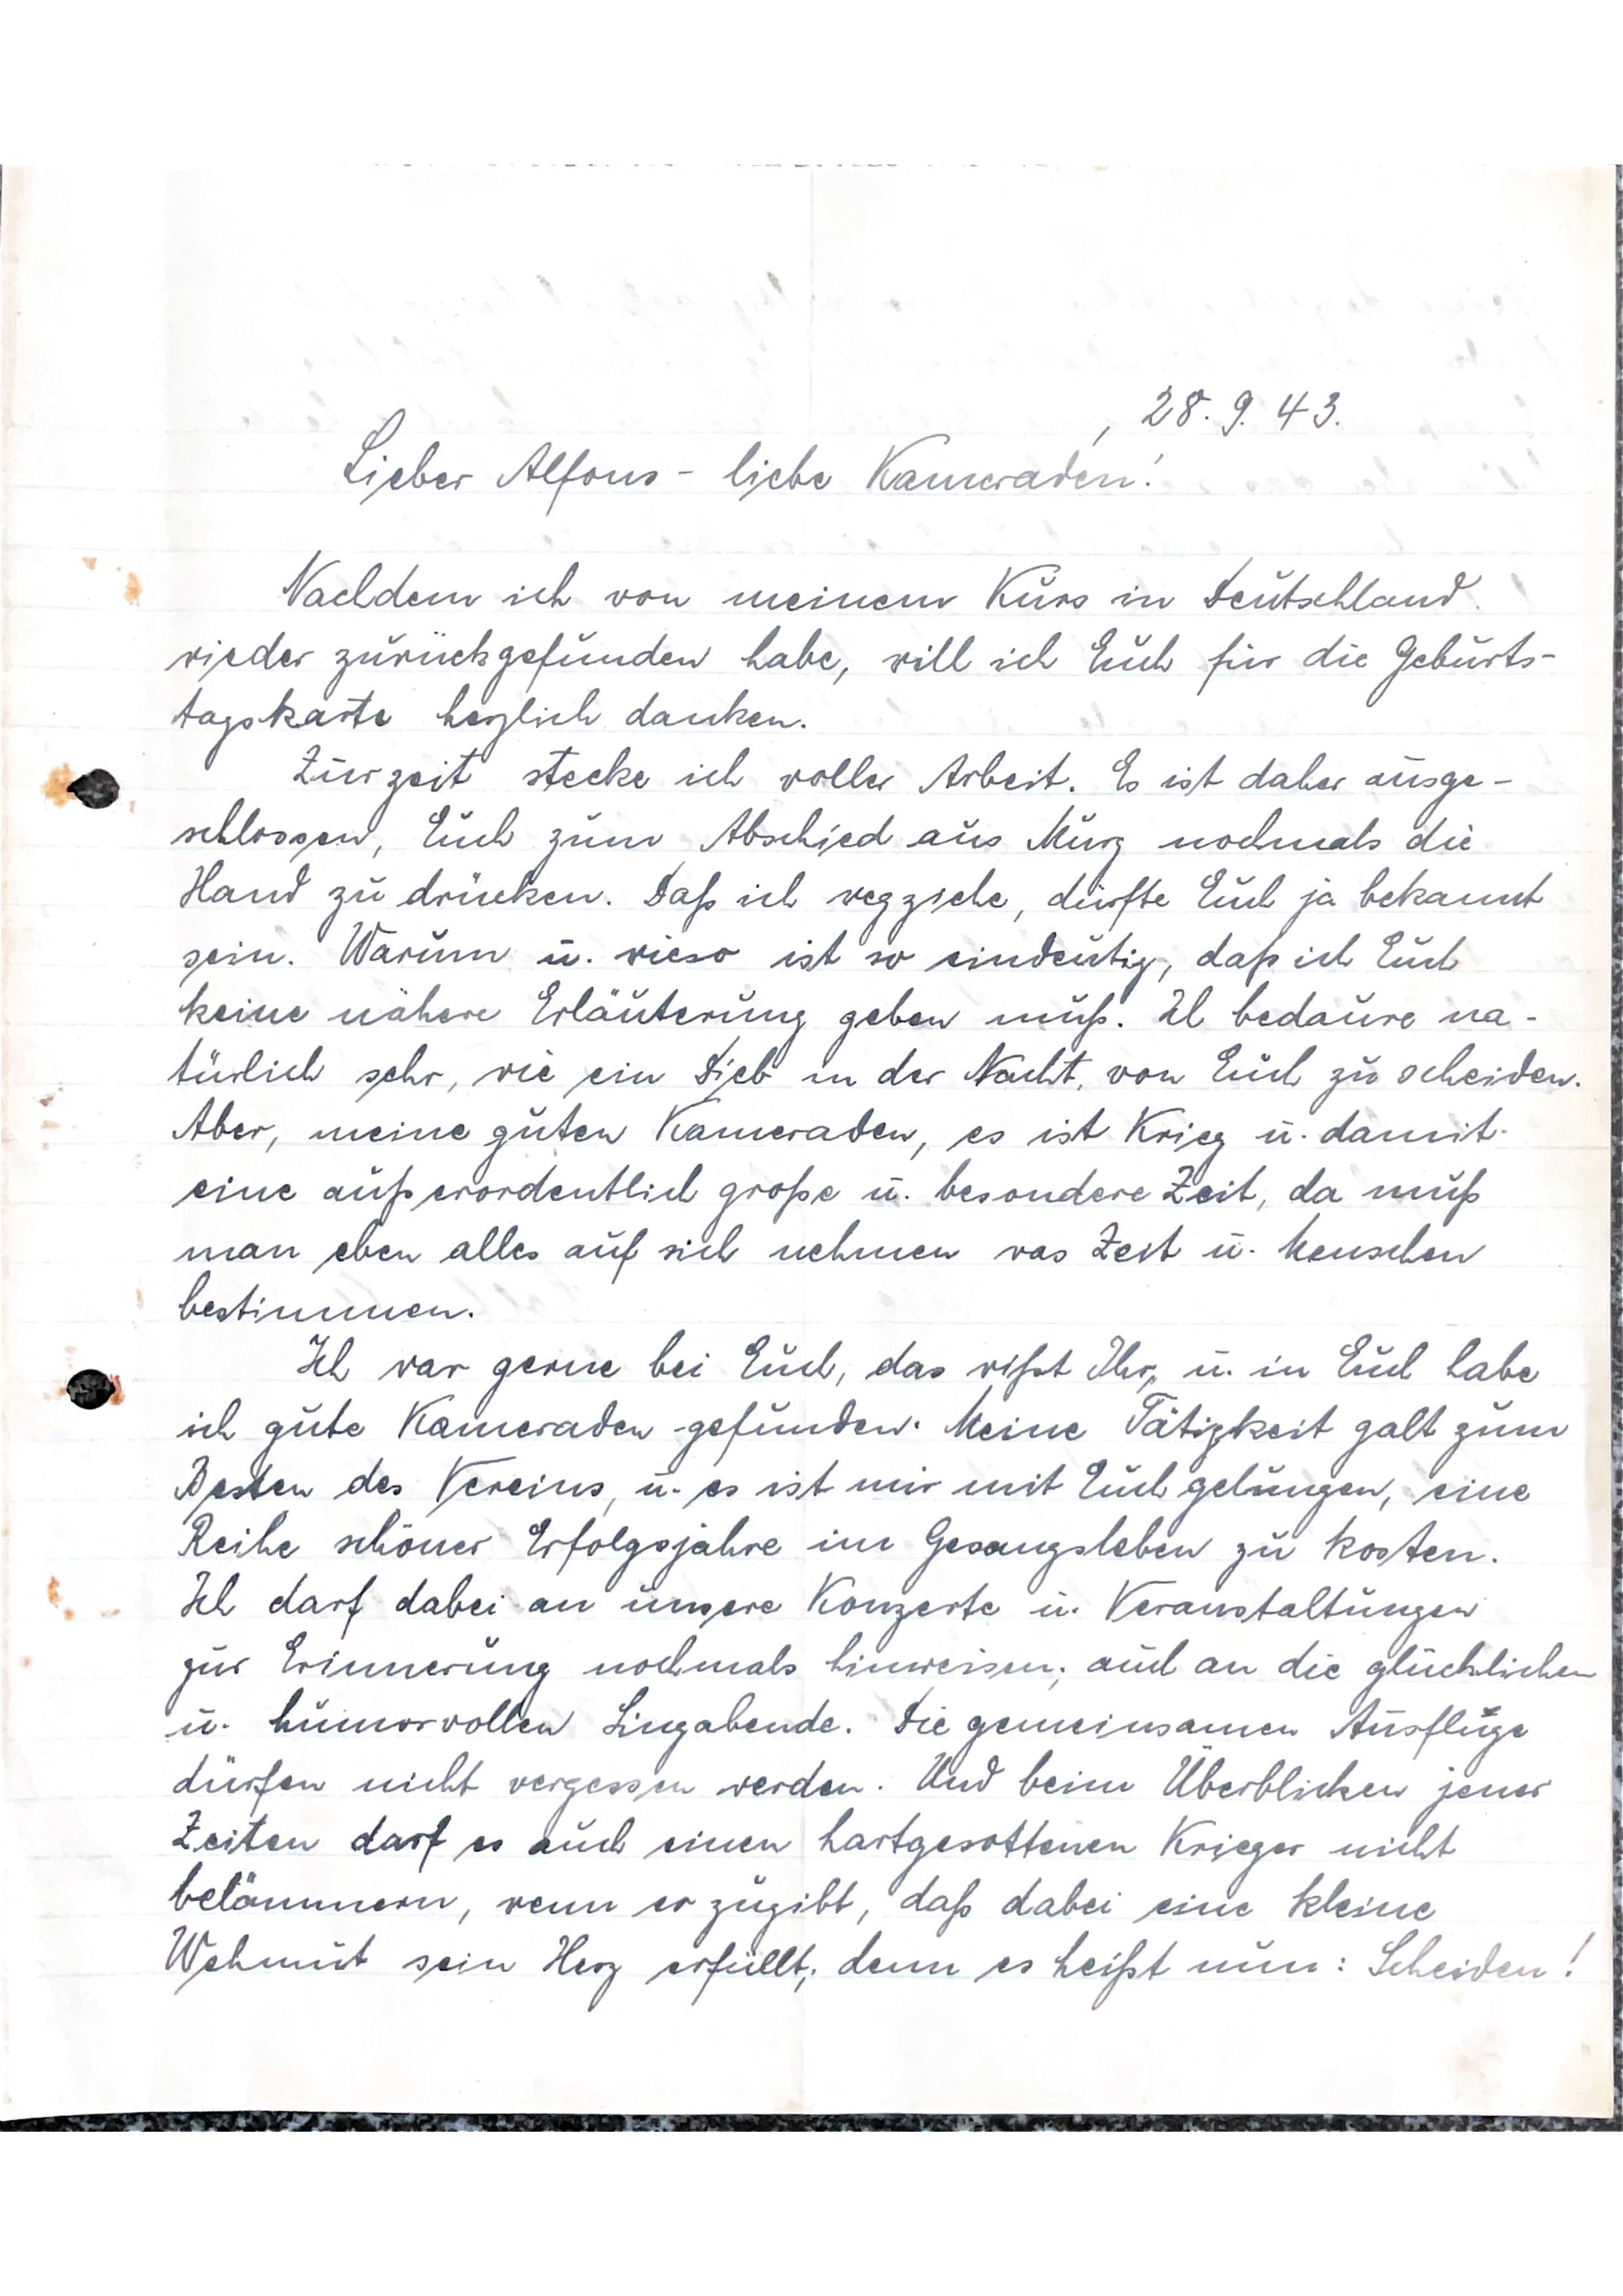 , 28. 9. 43.
Lieber Alfons - liebe Kameraden!
Nachdem ich von meinem Kurs in Deutschland
wieder zurückgefunden habe, will ich Euch für die Geburts-
tagskarte herzlich danken.
Zurzeit stecke ich voller Arbeit. Es ist daher ausge-
schlossen, Euch zum Abschied aus Murg nochmals die
Hand zu drücken. Daß ich wegziehe, dürfte Euch ja bekannt
sein. Warum u. wieso ist so eindeutig, daß ich Euch
keine nähere Erläuterung geben muß. Ich bedaure na-
türlich sehr, wie ein Dieb in der Nacht, von Euch zu scheiden.
Aber, meine guten Kameraden, es ist Krieg u. damit
eine außerordentlich große u. besondere Zeit, da muß
man eben alles auf sich nehmen was Zeit u. Menschen
bestimmen.
Ich war gerne bei Euch, das wißt Ihr, u. in Euch habe
ich gute Kameraden gefunden. Meine Tätigkeit galt zum
Besten des Vereins, u. es ist mir mit Euch gelungen, eine
Reihe schöner Erfolgsjahre im Gesangsleben zu kosten.
Ich darf dabei an unsere Konzerte u. Veranstaltungen
zur Erinnerung nochmals hinweisen; auch an die glücklichen
u. humorvollen Singabende. Die gemeinsamen Ausflüge
dürfen nicht vergessen werden. Und beim Überblicken jener
Zeiten darf es auch einen hartgesottenen Krieger nicht
belämmern, wenn er zugibt, daß dabei eine kleine
Wehmut sein Herz erfüllt; denn es heißt nun: Scheiden!